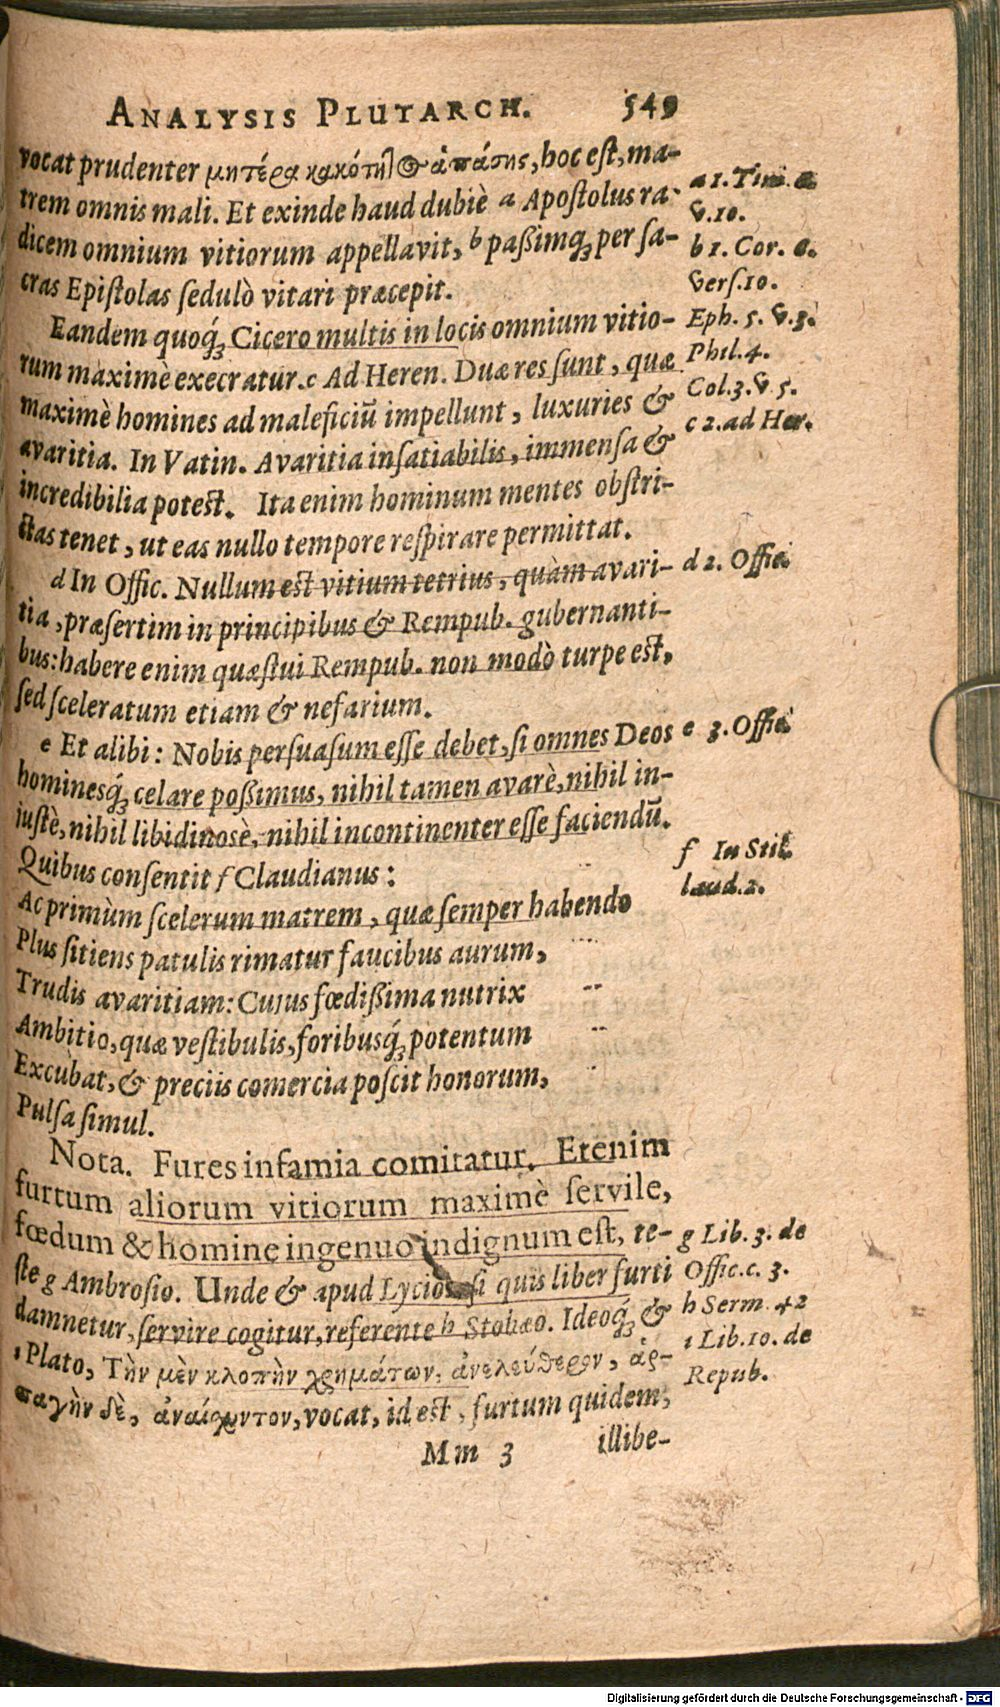 ANALYSIS PLUTARCH. 549
vocat prudenter μητέρα κακότητος ἁπάσης, hoc est, ma-
trem omnis mali. Et exinde haud dubiè a Apostolus ra-
dicem omnium vitiorum appellavit, b paßimq́ per sa-
cras Epistolas sedulò vitari præcepit.
Eandem quoq́ Cicero multis in locis omnium vitio-
rum maximè execratur. c Ad Heren. Duæ res sunt, quæ
maximè homines ad maleficiũ impellunt, luxuries &
avaritia. In Vatin. Avaritia insatiabilis, immensa &
incredibilia potest. Ita enim hominum mentes obstri-
ctas tenet, ut eas nullo tempore respirare permittat.
d In Offic. Nullum est vitium tetrius, quàm avari-
tia, præsertim in principibus & Rempub. gubernanti-
bus: habere enim quæstui Rempub. non modò turpe est,
sed sceleratum etiam & nefarium.
e Et alibi: Nobis persuasum esse debet, si omnes Deos
hominesq́ celare poßimus, nihil tamen avarè, nihil in-
iustè, nihil libidinosè, nihil incontinenter esse faciendũ.
Quibus consentit f Claudianus:
Ac primùm scelerum matrem, quæ semper habendo
Plus sitiens patulis rimatur faucibus aurum,
Trudis avaritiam: Cujus fœdißima nutrix
Ambitio, quæ vestibulis, foribusq́ potentum
Excubat, & preciis comercia poscit honorum,
Pulsa simul.
Nota. Fures infamia comitatur. Etenim
furtum aliorum vitiorum maximè servile,
fœdum & homine ingenuo indignum est, te-
ste g Ambrosio. Unde & apud Lycios si quis liber furti
damnetur, servire cogitur, referente h Stobæo. Ideoq́ &
i Plato, Τὴν μὲν κλοπὴν χρημάτων, ἀνελεύθερον, ἁρ-
παγὴν δὲ, ἀναίσχυντον, vocat, id est, furtum quidem,
Mm 3 illibe-
a 1. Tim.
v. 10.
b 1. Cor.
vers. 10.
Eph. 5. v. 3.
Phil. 4.
Col. 3. v 5.
c 2. ad Her.
d 2. Offic.
e 3. Offic.
f In Stil.
laud. 2.
g Lib. 3. de
Offic. c. 3.
h Serm. 42
i Lib. 10. de
Repub.
Digitalisierung gefördert durch die Deutsche Forschungsgemeinschaft - DFG